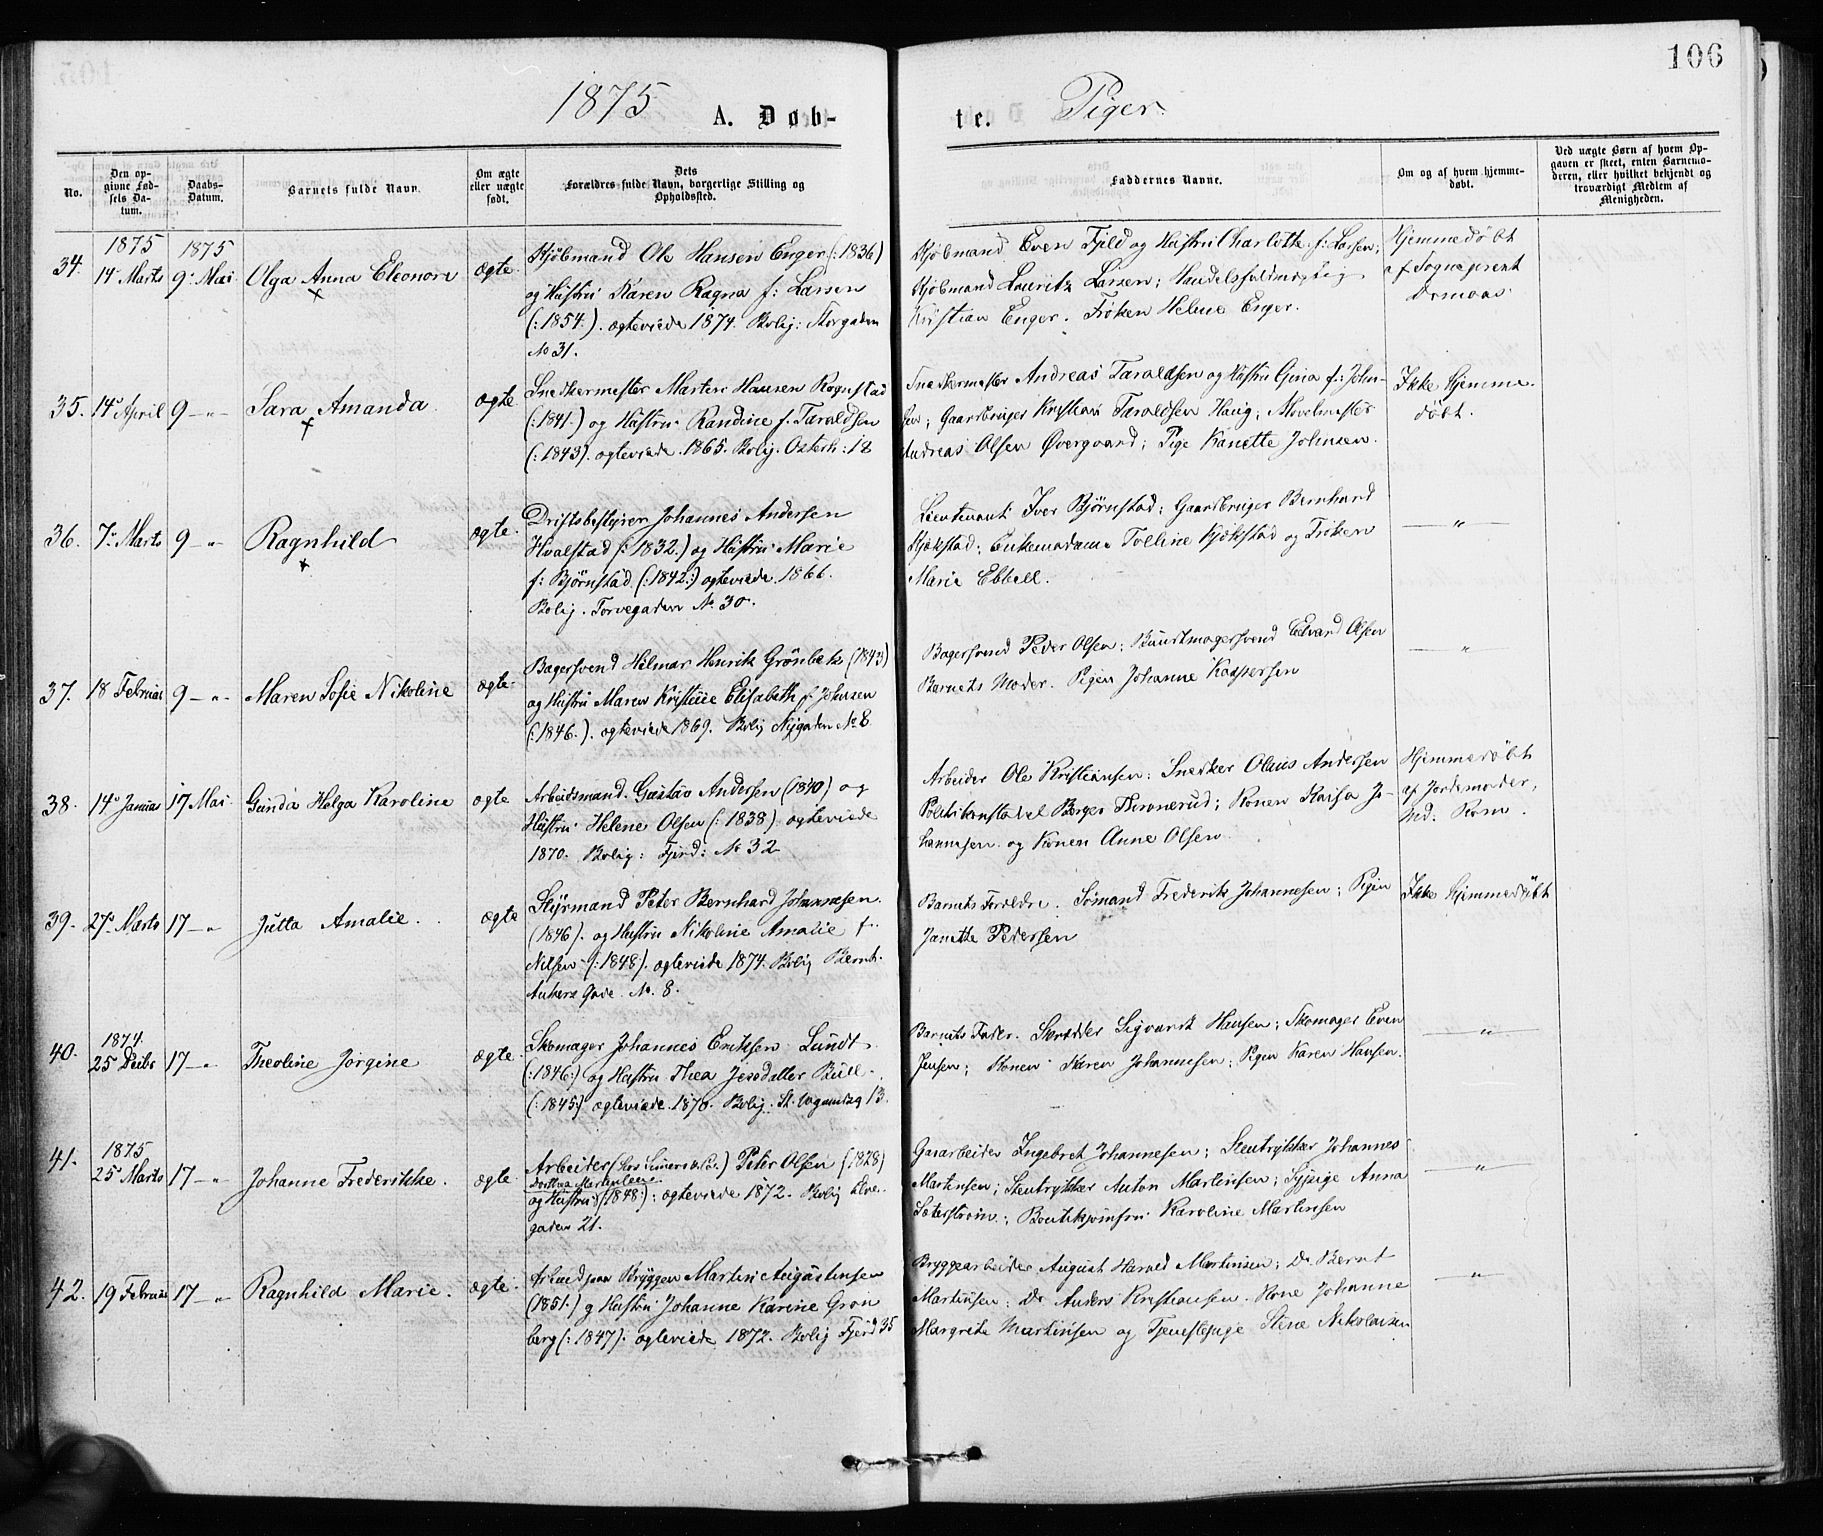 106
1875 A. Døb- te. Piger.
No.
Den op-
givne Fød-
sels Da-
tum.
Daabs-
Datum.
Barnets fulde Navn.
Om ægte
eller uægte
født.
Dets
Forældres fulde Navn, borgerlige Stilling og
Opholdssted.
Faddernes Navne.
Om og af hvem hjemme-
døbt.
Ved uægte Børn af hvem Op-
gaven er skeet, enten Barnemo-
deren, eller hvilket bekjendt og
troværdigt Medlem af
Menigheden.
34. 1875 14 Marts 1875 9 Mai Olga Anna Eleonora ægte.
Kjøbmand Ole Hansen Enger (: 1836)
og Hustru Karen Ragna f: Larsen
(: 1854:). ægteviede 1874. Bolig: Storgaden
No 31.
Kjøbmand Even Fjeld og Hustru Charlotte f: Larsen;
Kjøbmand Lauritz Larsen; Handelsfuldmægtig
Kristian Enger. Frøken Helene Enger.
Hjemmedøbt
af Sogneprest
35. 14 April 9 - " - Sara Amanda ægte.
Snedkermester Martin Hansen Rognstad
(: 1841.) og Hustru Randine f. Taraldsen
(: 1843). ægteviede. 1865. Bolig. Osterh: 18
Snedkermester Andreas Taraldsen og Hustru Gina f: John-
sen; Gaardbruger Kristian Taraldsen Haug;
Andreas Olsen Øvergaard; Pige Kanette Johnsen.
Ikke Hjemme-
døbt.
36. 7 Marts 9 - " - Ragnhild ægte.
Driftsbestyrer Johannes Andersen
Hvalstad (: 1832.) og Hustru Marie
f: Bjørnstad (: 1842:) ægteviede. 1866.
Bolig. Torvegaden No. 30.
Lieutenant Iver Bjørnstad; Gaardbruger Bernhard
Kjøkstad; Enkemadame Tolline Kjøkstad og Frøken
Marie Ebbell.
"
37. 18 Februar 9 - " - Maren Sofie Nikoline ægte.
Bagersvend Hilmar Henrik Grönbek (1843)
og Hustru Maren Kristine Elisabeth f Johnsen
(: 1846.). ægteviede 1869. Bolig Nygaden No 8
Bagersvend Peder Olsen; Buntmagersvend Edvard Olsen
Barnets Moder. Pigen Johanne Kaspersen
"
38. 14 Januar 17 Mai Gunda Helga Karoline ægte
Arbeidsmand. Gustav Andersen (1840) og
Hustru Helene Olsen (: 1838) ægteviede
1870. Bolig: Fjerd: No 32
Arbeider Ole Kristiansen; Snedker Olaus Andersen
Politikonstabel Berger Thronerud; Konen Kaisa Jo-
hannesen og Konen Anne Olsen
Hjemmedøbt
af Jordemoder,
Md. Rom.
39. 27 Marts 17 - " Jutta Amalie. ægte
Styrmand Peter Bernhard Johannesen.
(1846). og Hustru Nikoline Amalie f.
Nilsen (: 1848). ægteviede 1874. Bolig Bernt
Ankers Gade. No. 8.
Barnets Forældre. Sømand Frederik Johannesen; Pigen
Janette Pedersen
Ikke Hjemmedøbt
40. 1874. 25 Decbr 17 - " Theoline Jørgine ægte.
Skomager Johannes Eriksen Lundt
(: 1846:) og Hustru Thea Jensdatter Bull
(: 1845:) ægteviede. 1870. Bolig. St. 13.
Barnets Fader. Skrædder Sigvardt Hansen; Skomager Even
Jensen; Konen Karen Johannesen; Pigen Karen Hansen.
"
41. 1875 25 Marts 17 - " Johanne Frederikke. ægte.
Arbeider Peter Olsen (1828)
Dorthea Martinsen
og Hustru (1848:); ægteviede 1872. Bolig Elve-
gaden 21.
Gasarbeider Ingebret Johannesen; Stentrykker Johannes
Martinsen; Stentrykker Anton Martinsen; Sypige Anna
Söterstrøm; Boutikjomfru Karoline Martinsen
"
42. 19 Februar 17 - " Ragnhild Marie. ægte.
Arbeid. paa Bryggen Martin Augustinsen
(1851.) og Hustru Johanne Karine Gron
berg (: 1847): ægteviede 1872. Bolig Fjerd 35
Bryggearbeider August Harald Martinsen; Do Bernt
Martinsen; Do Anders Kristiansen. Kone Johanne
Margrete Martinsen og Tjenestepige Stine Nikolaisen
"